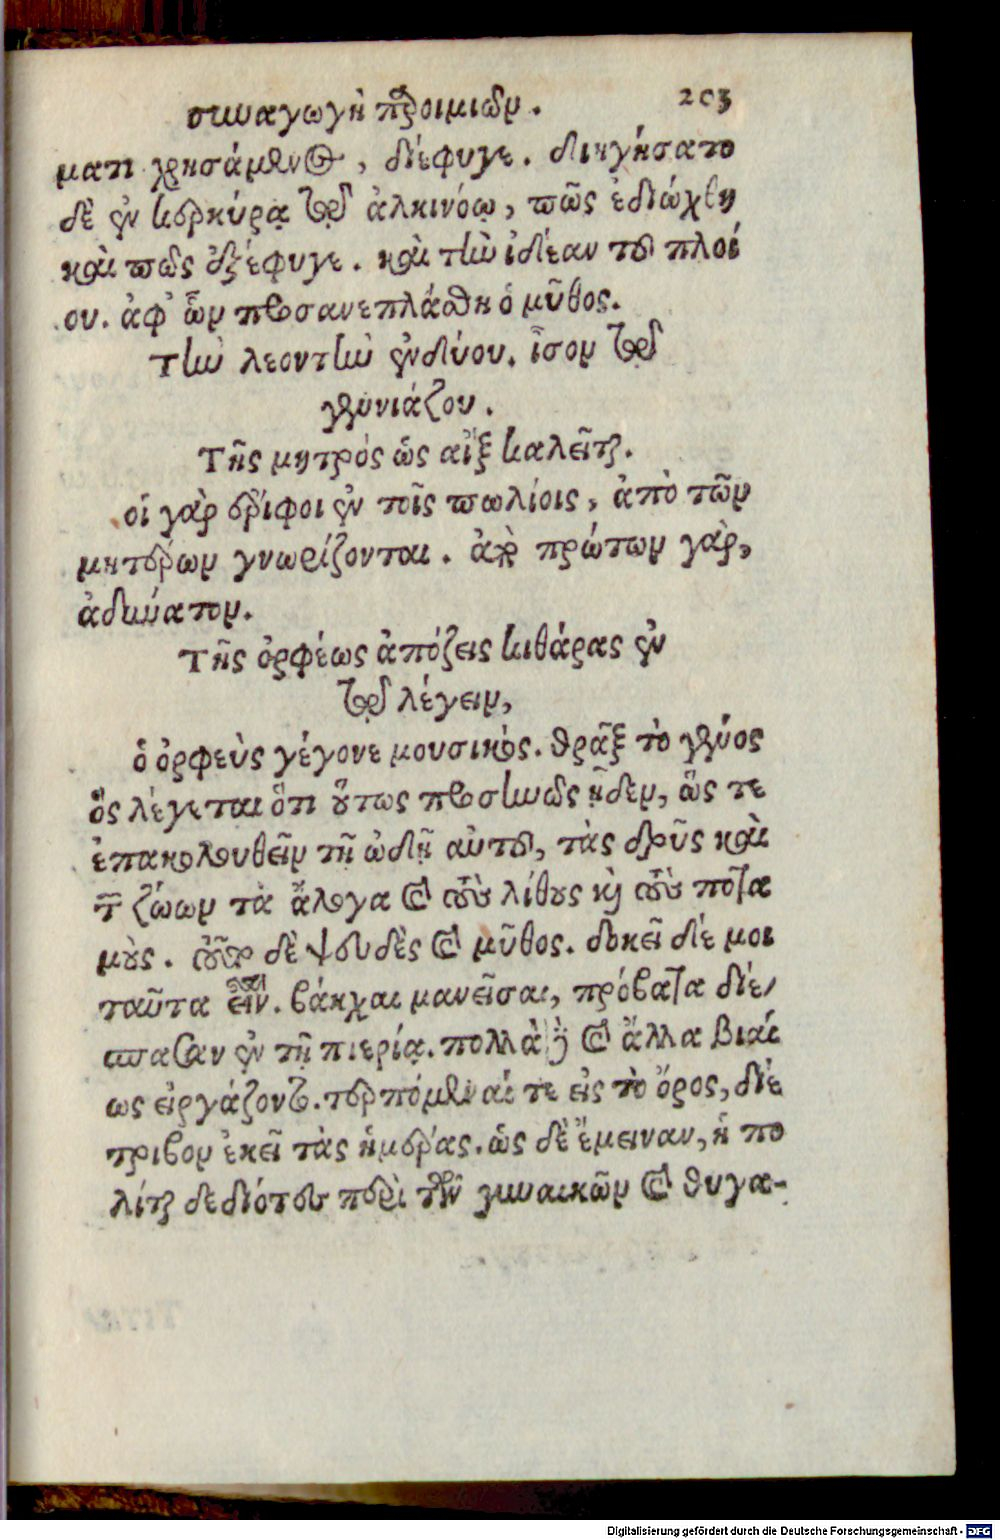 συναγωγὴ παροιμιῶν. 203
ματι χρησάμενος, διέφυγε. διηγήσατο
δὲ ἐν κερκύρᾳ τῷ ἀλκινόῳ, πῶς ἐδιώχθη
καὶ πῶς ἐξέφυγε. καὶ τὴν ἰδέαν τοῦ πλοί
ου. ἀφ' ὧν προσανεπλάσθη ὁ μῦθος.
Τὴν λεοντῆν ἐνδύου. ἴσον τῷ
γενναιάζου.
Τῆς μητρὸς ὡς αἲξ καλεῖται.
οἱ γὰρ ἔριφοι ἐν τοῖς πωλίοις, ἀπὸ τῶν
μητέρων γνωρίζονται. ἀπὸ πρώτων γὰρ,
ἀδύνατον.
Τῆς ὀρφέως ἀπόζεις κιθάρας ἐν
τῷ λέγειν,
ὁ ὀρφεὺς γέγονε μουσικός. θρᾷξ τὸ γένος
ὃς λέγεται ὅτι οὕτως προσηνῶς ᾖδεν, ὥς τε
ἐπακολουθεῖν τῇ ὠδῇ αὐτοῦ, τὰς δρῦς καὶ
τῶν ζώων τὰ ἄλογα καὶ τοὺς λίθους καὶ τοὺς ποτα
μούς. τοῦτο δὲ ψευδὲς καὶ μῦθος. δοκεῖ δέ μοι
ταῦτα εἶναι. βάκχαι μανεῖσαι, πρόβατα διέ
σπασαν ἐν τῇ πιερίᾳ. πολλὰ δὲ καὶ ἄλλα βιαί
ως εἰργάζοντο. τρεπόμεναί τε εἰς τὸ ὄρος, διέ
τριβον ἐκεῖ τὰς ἡμέρας. ὡς δὲ ἔμειναν, ἡ πο
λῖται δεδιότες περὶ τῶν γυναικῶν καὶ θυγα-
Digitalisierung gefördert durch die Deutsche Forschungsgemeinschaft - DFG